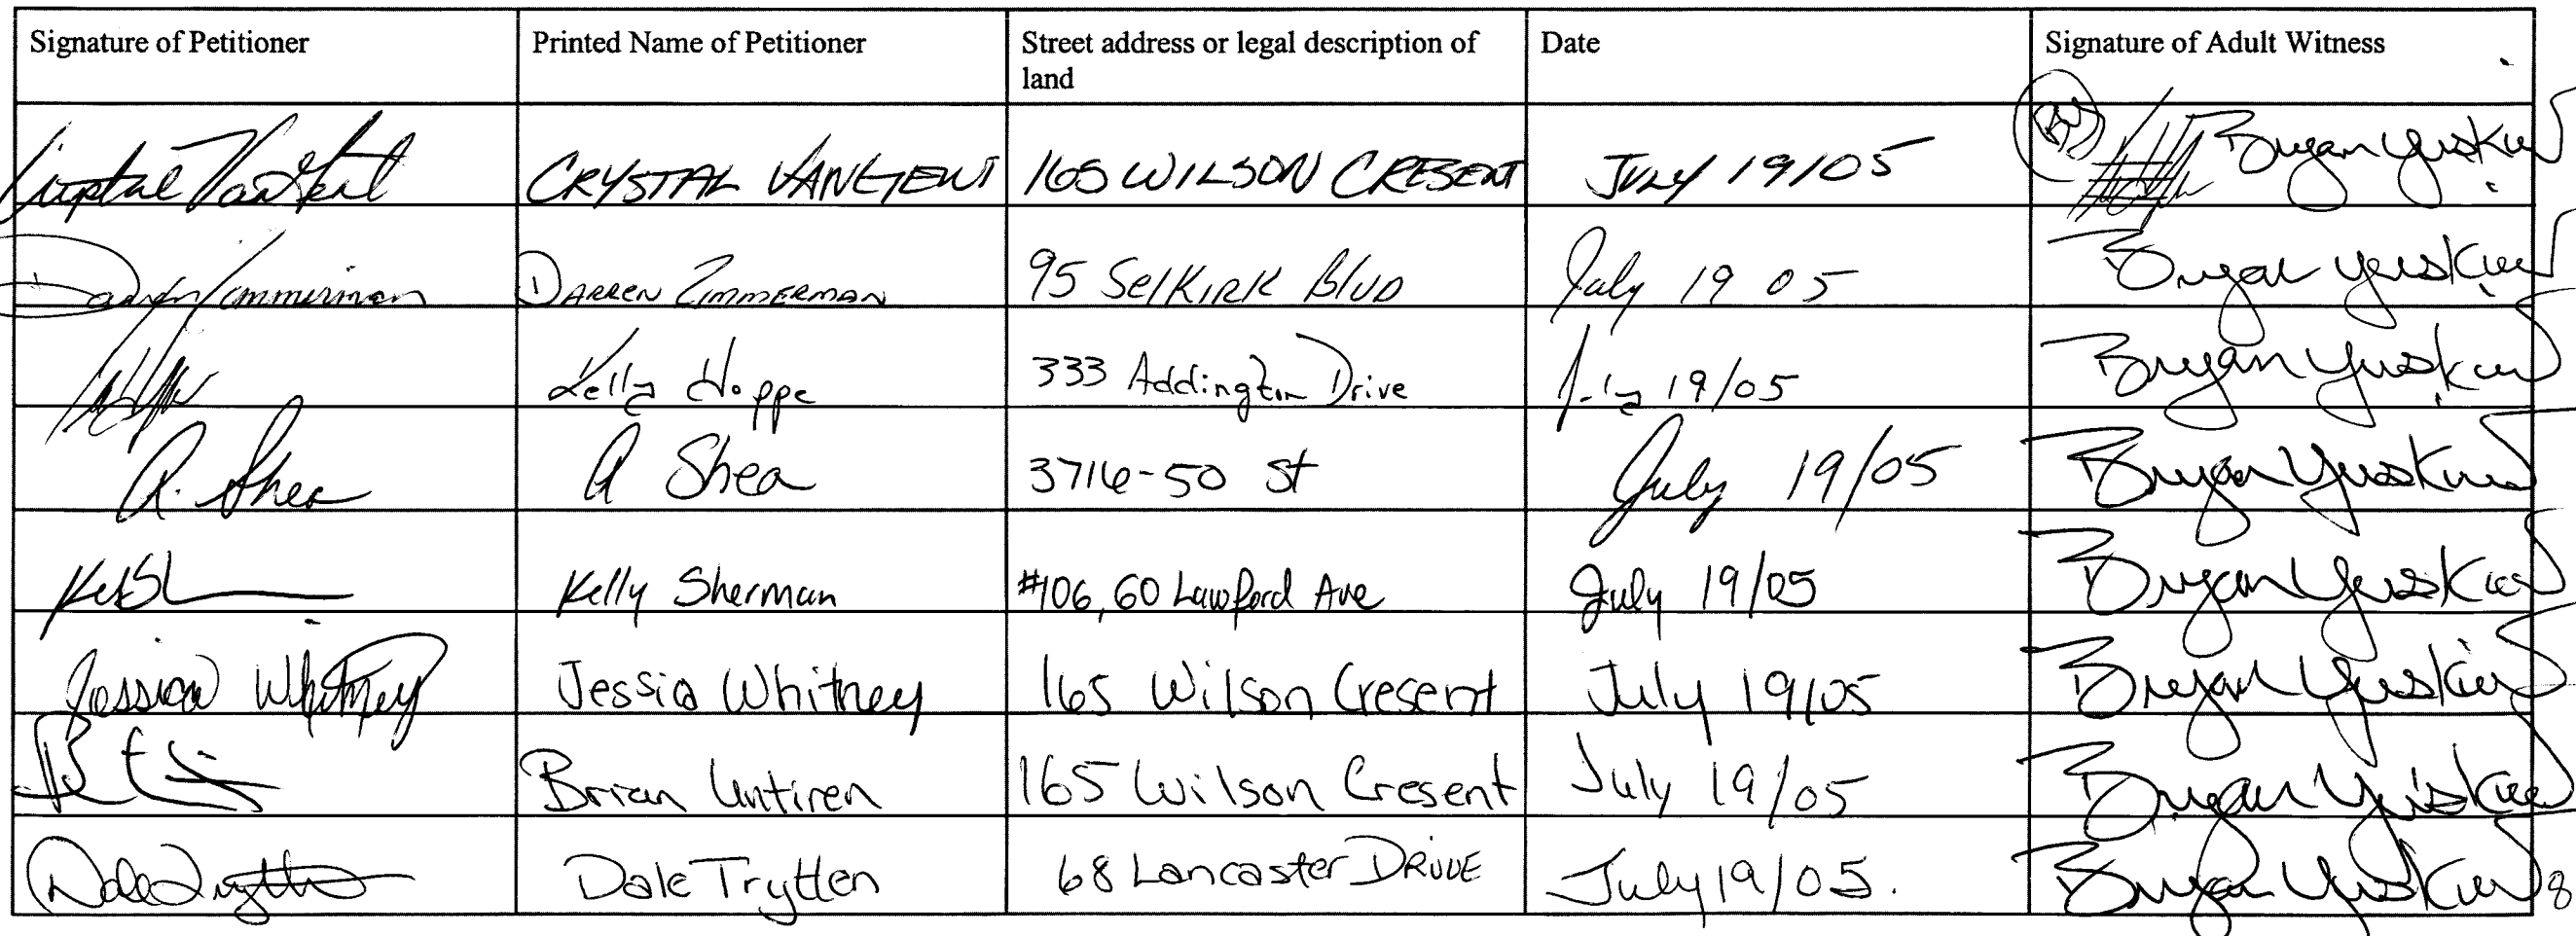 Signature of Petitioner Printed Name of Petitioner Street address or legal description of land Date Signature of Adult Witness
CRYSTAL VANGENT 165 WILSON CRESENT JULY 19/05 Bryan Yuskiw
Darren Zimmerman DARREN ZIMMERMAN 95 SelKIRK Blvd July 19 05 Bryan Yuskiw
Kelly Hoppe 333 Addington Drive July 19/05 Bryan Yuskiw
A. Shea A Shea 3716-50 St July 19/05 Bryan Yuskiw
Kelly Sherman #106, 60 Lawford Ave July 19/05 Bryan Yuskiw
Jessica Whitney Jessica Whitney 165 Wilson Cresent July 19/05 Bryan Yuskiw
Brian Untiren 165 Wilson Cresent July 19/05 Bryan Yuskiw
Dale Trytten Dale Trytten 68 Lancaster DRIVE July 19/05. Bryan Yuskiw 8